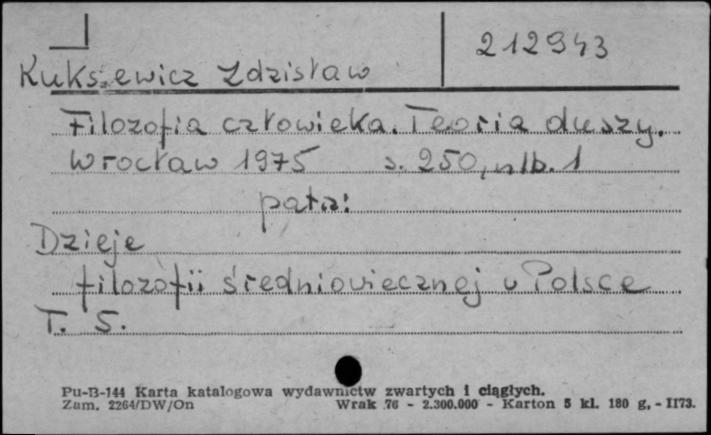 212943
Kuksewicz Zdzisław
Filozofia człowieka. Teoria duszy.
Wrocław 1975 s. 250, nlb. 1
patrz:
Dzieje
filozofii średniowiecznej w Polsce
T. 5.
Pu-B-144 Karta katalogowa wydawnictw zwartych i ciągłych.
Zam. 2264/DW/On Wrak 76 - 2.300.000 - Karton 5 kl. 180 g. - II73.